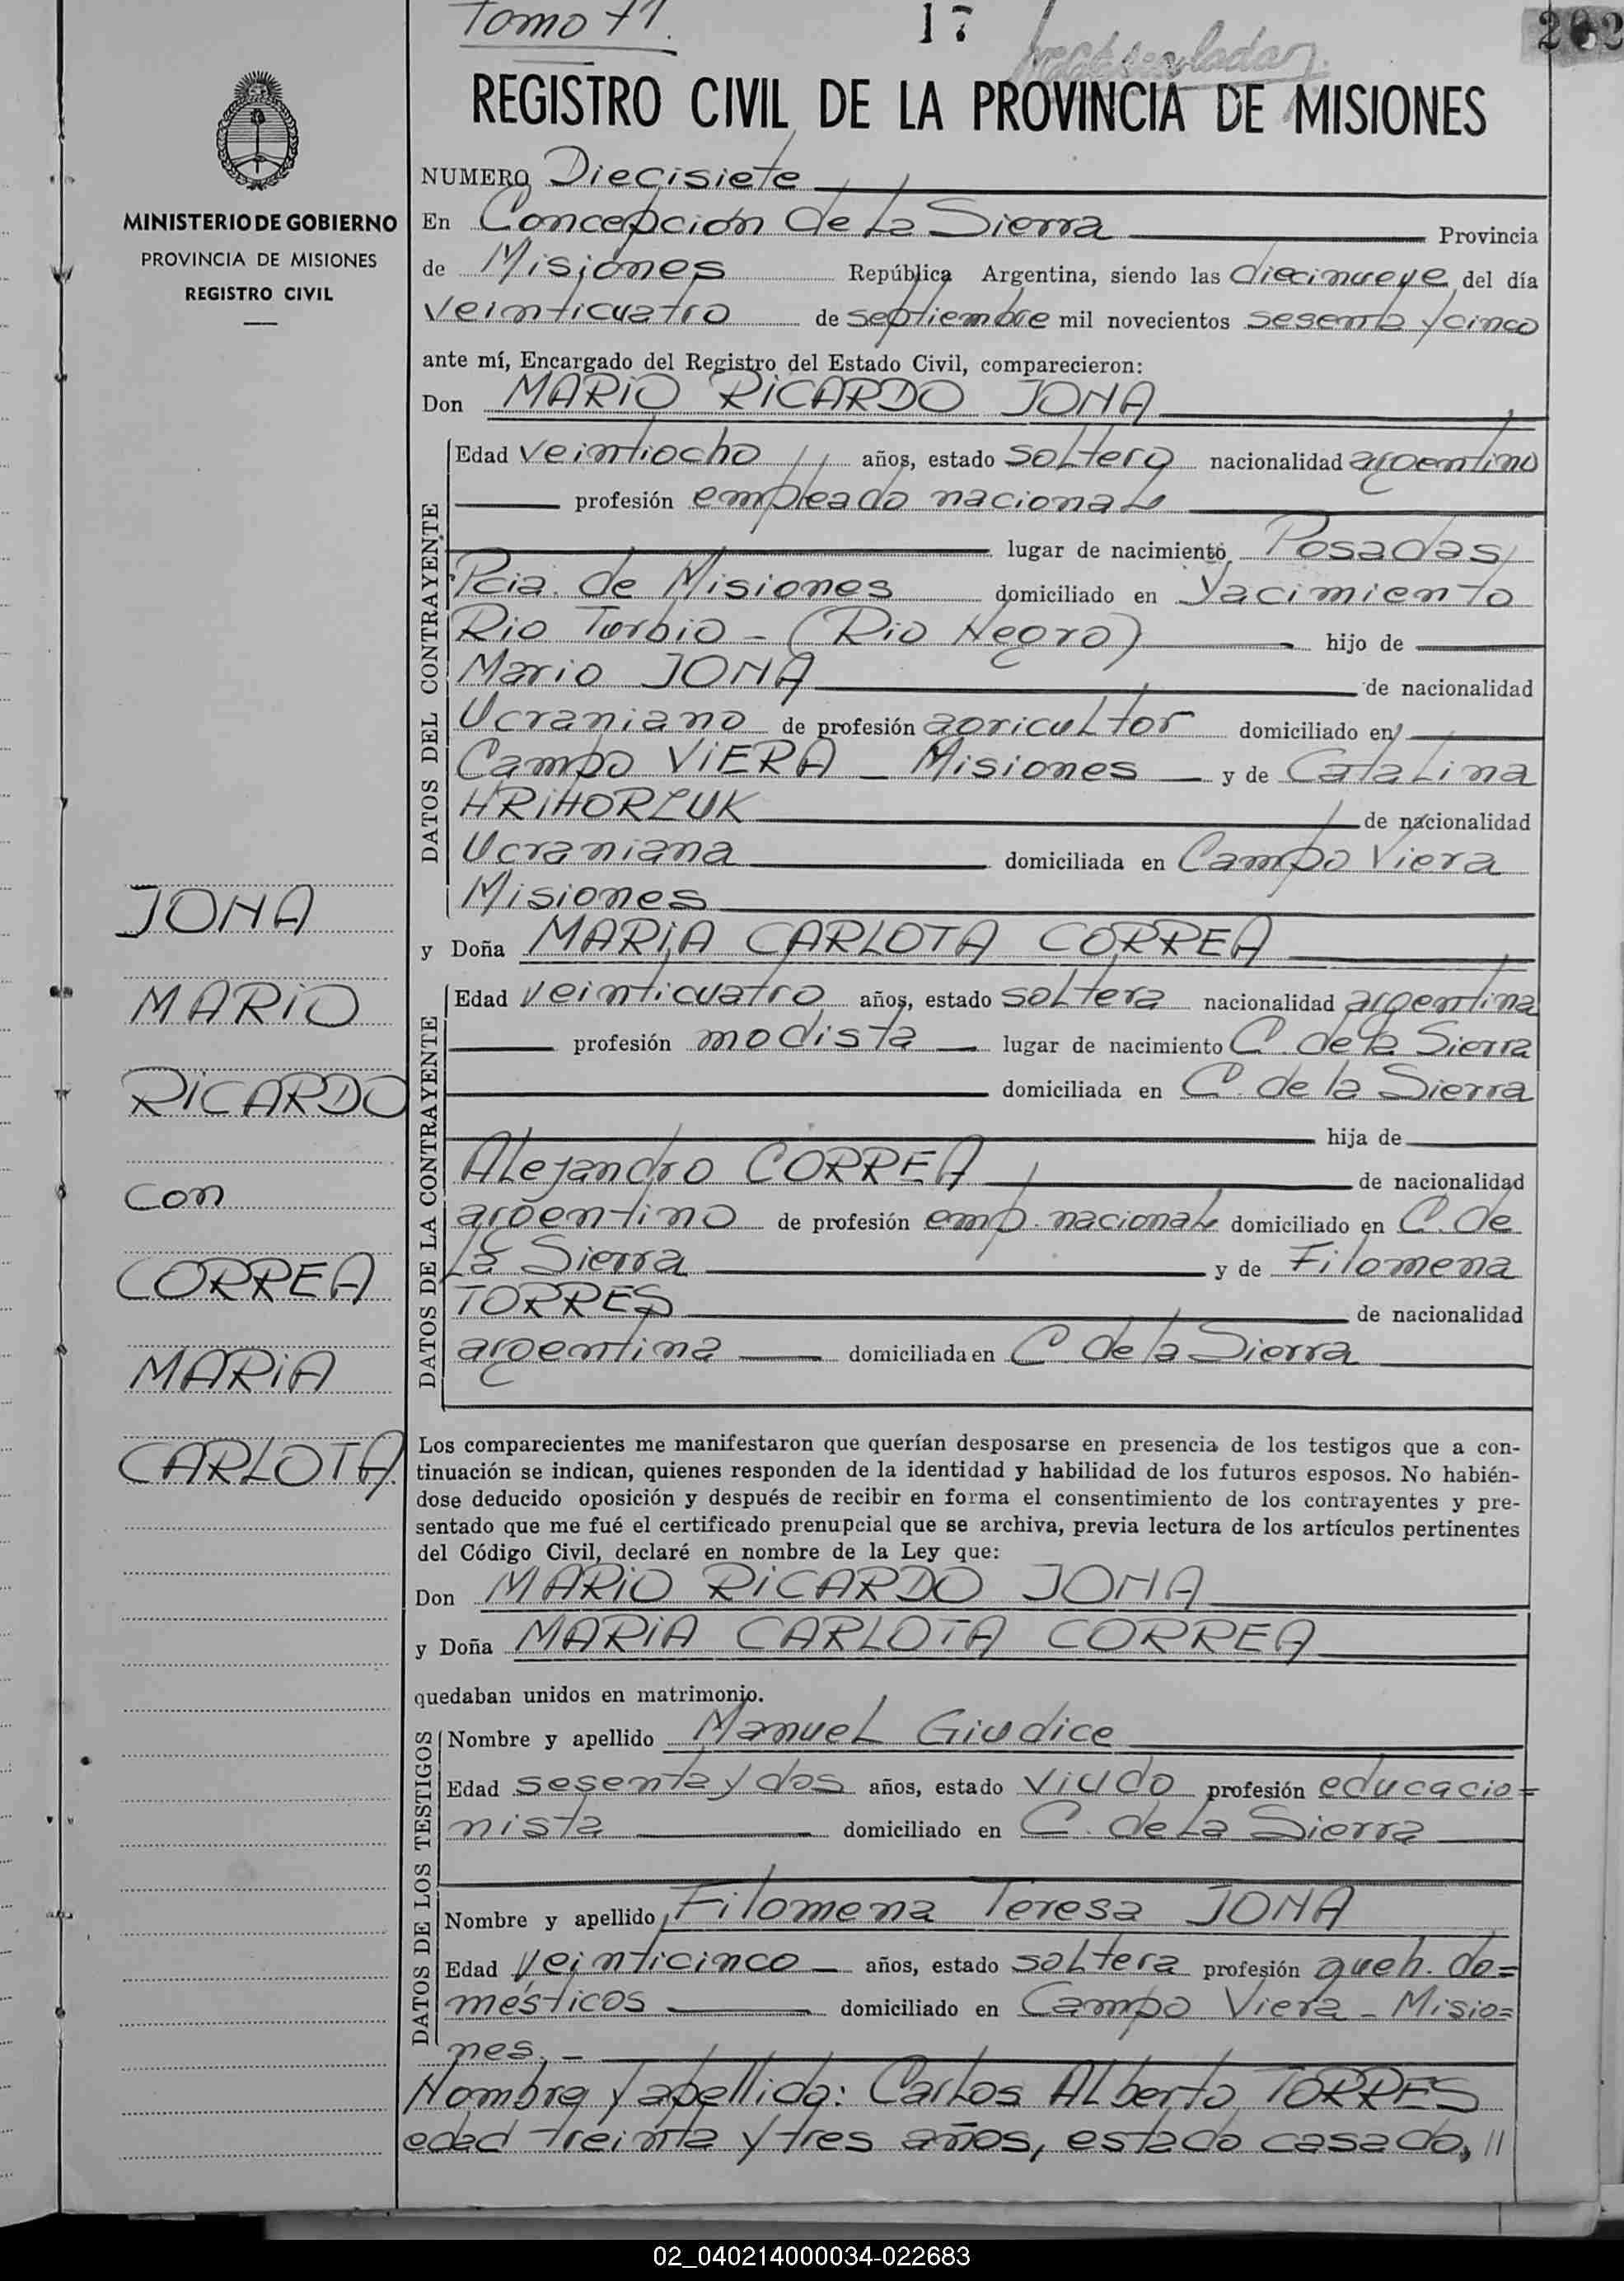 Tomo 71.
17
202
REGISTRO CIVIL DE LA PROVINCIA DE MISIONES
MINISTERIO DE GOBIERNO
PROVINCIA DE MISIONES
REGISTRO CIVIL
NUMERO Diecisiete
En Concepción de La Sierra Provincia
de Misiones República Argentina, siendo las diecinueve del día
veinticuatro de septiembre mil novecientos sesenta y cinco
ante mí, Encargado del Registro del Estado Civil, comparecieron:
Don MARIO RICARDO JONA
DATOS DEL CONTRAYENTE
Edad veintiocho años, estado soltero nacionalidad argentino
profesión empleado nacional
lugar de nacimiento Posadas
Pcia. de Misiones domiciliado en Yacimiento
Rio Turbio - (Rio Negro) hijo de
Mario JONA de nacionalidad
Ucraniano de profesión agricultor domiciliado en
Campo VIERA - Misiones y de Catalina
HRIHORLUK de nacionalidad
Ucraniana domiciliada en Campo Viera
Misiones
y Doña MARIA CARLOTA CORREA
DATOS DE LA CONTRAYENTE
Edad veinticuatro años, estado soltera nacionalidad argentina
profesión modista lugar de nacimiento C. de la Sierra
domiciliada en C. de la Sierra
hija de
Alejandro CORREA de nacionalidad
argentino de profesión emp. nacional domiciliado en C. de
la Sierra y de Filomena
TORRES de nacionalidad
argentina domiciliada en C. de la Sierra
JONA
MARIO
RICARDO
con
CORREA
MARIA
CARLOTA
Los comparecientes me manifestaron que querían desposarse en presencia de los testigos que a con-
tinuación se indican, quienes responden de la identidad y habilidad de los futuros esposos. No habién-
dose deducido oposición y después de recibir en forma el consentimiento de los contrayentes y pre-
sentado que me fué el certificado prenupcial que se archiva, previa lectura de los artículos pertinentes
del Código Civil, declaré en nombre de la Ley que:
Don MARIO RICARDO JONA
y Doña MARIA CARLOTA CORREA
quedaban unidos en matrimonio.
DATOS DE LOS TESTIGOS
Nombre y apellido Manuel Giudice
Edad sesenta y dos años, estado viudo profesión educacio=
nista domiciliado en C. de La Sierra
Nombre y apellido Filomena Teresa JONA
Edad veinticinco - años, estado soltera profesión queh. do=
mésticos domiciliado en Campo Viera - Misio=
nes. -
Nombre y apellido: Carlos Alberto TORRES
edad treinta y tres años, estado casado, //
02_040214000034-022683